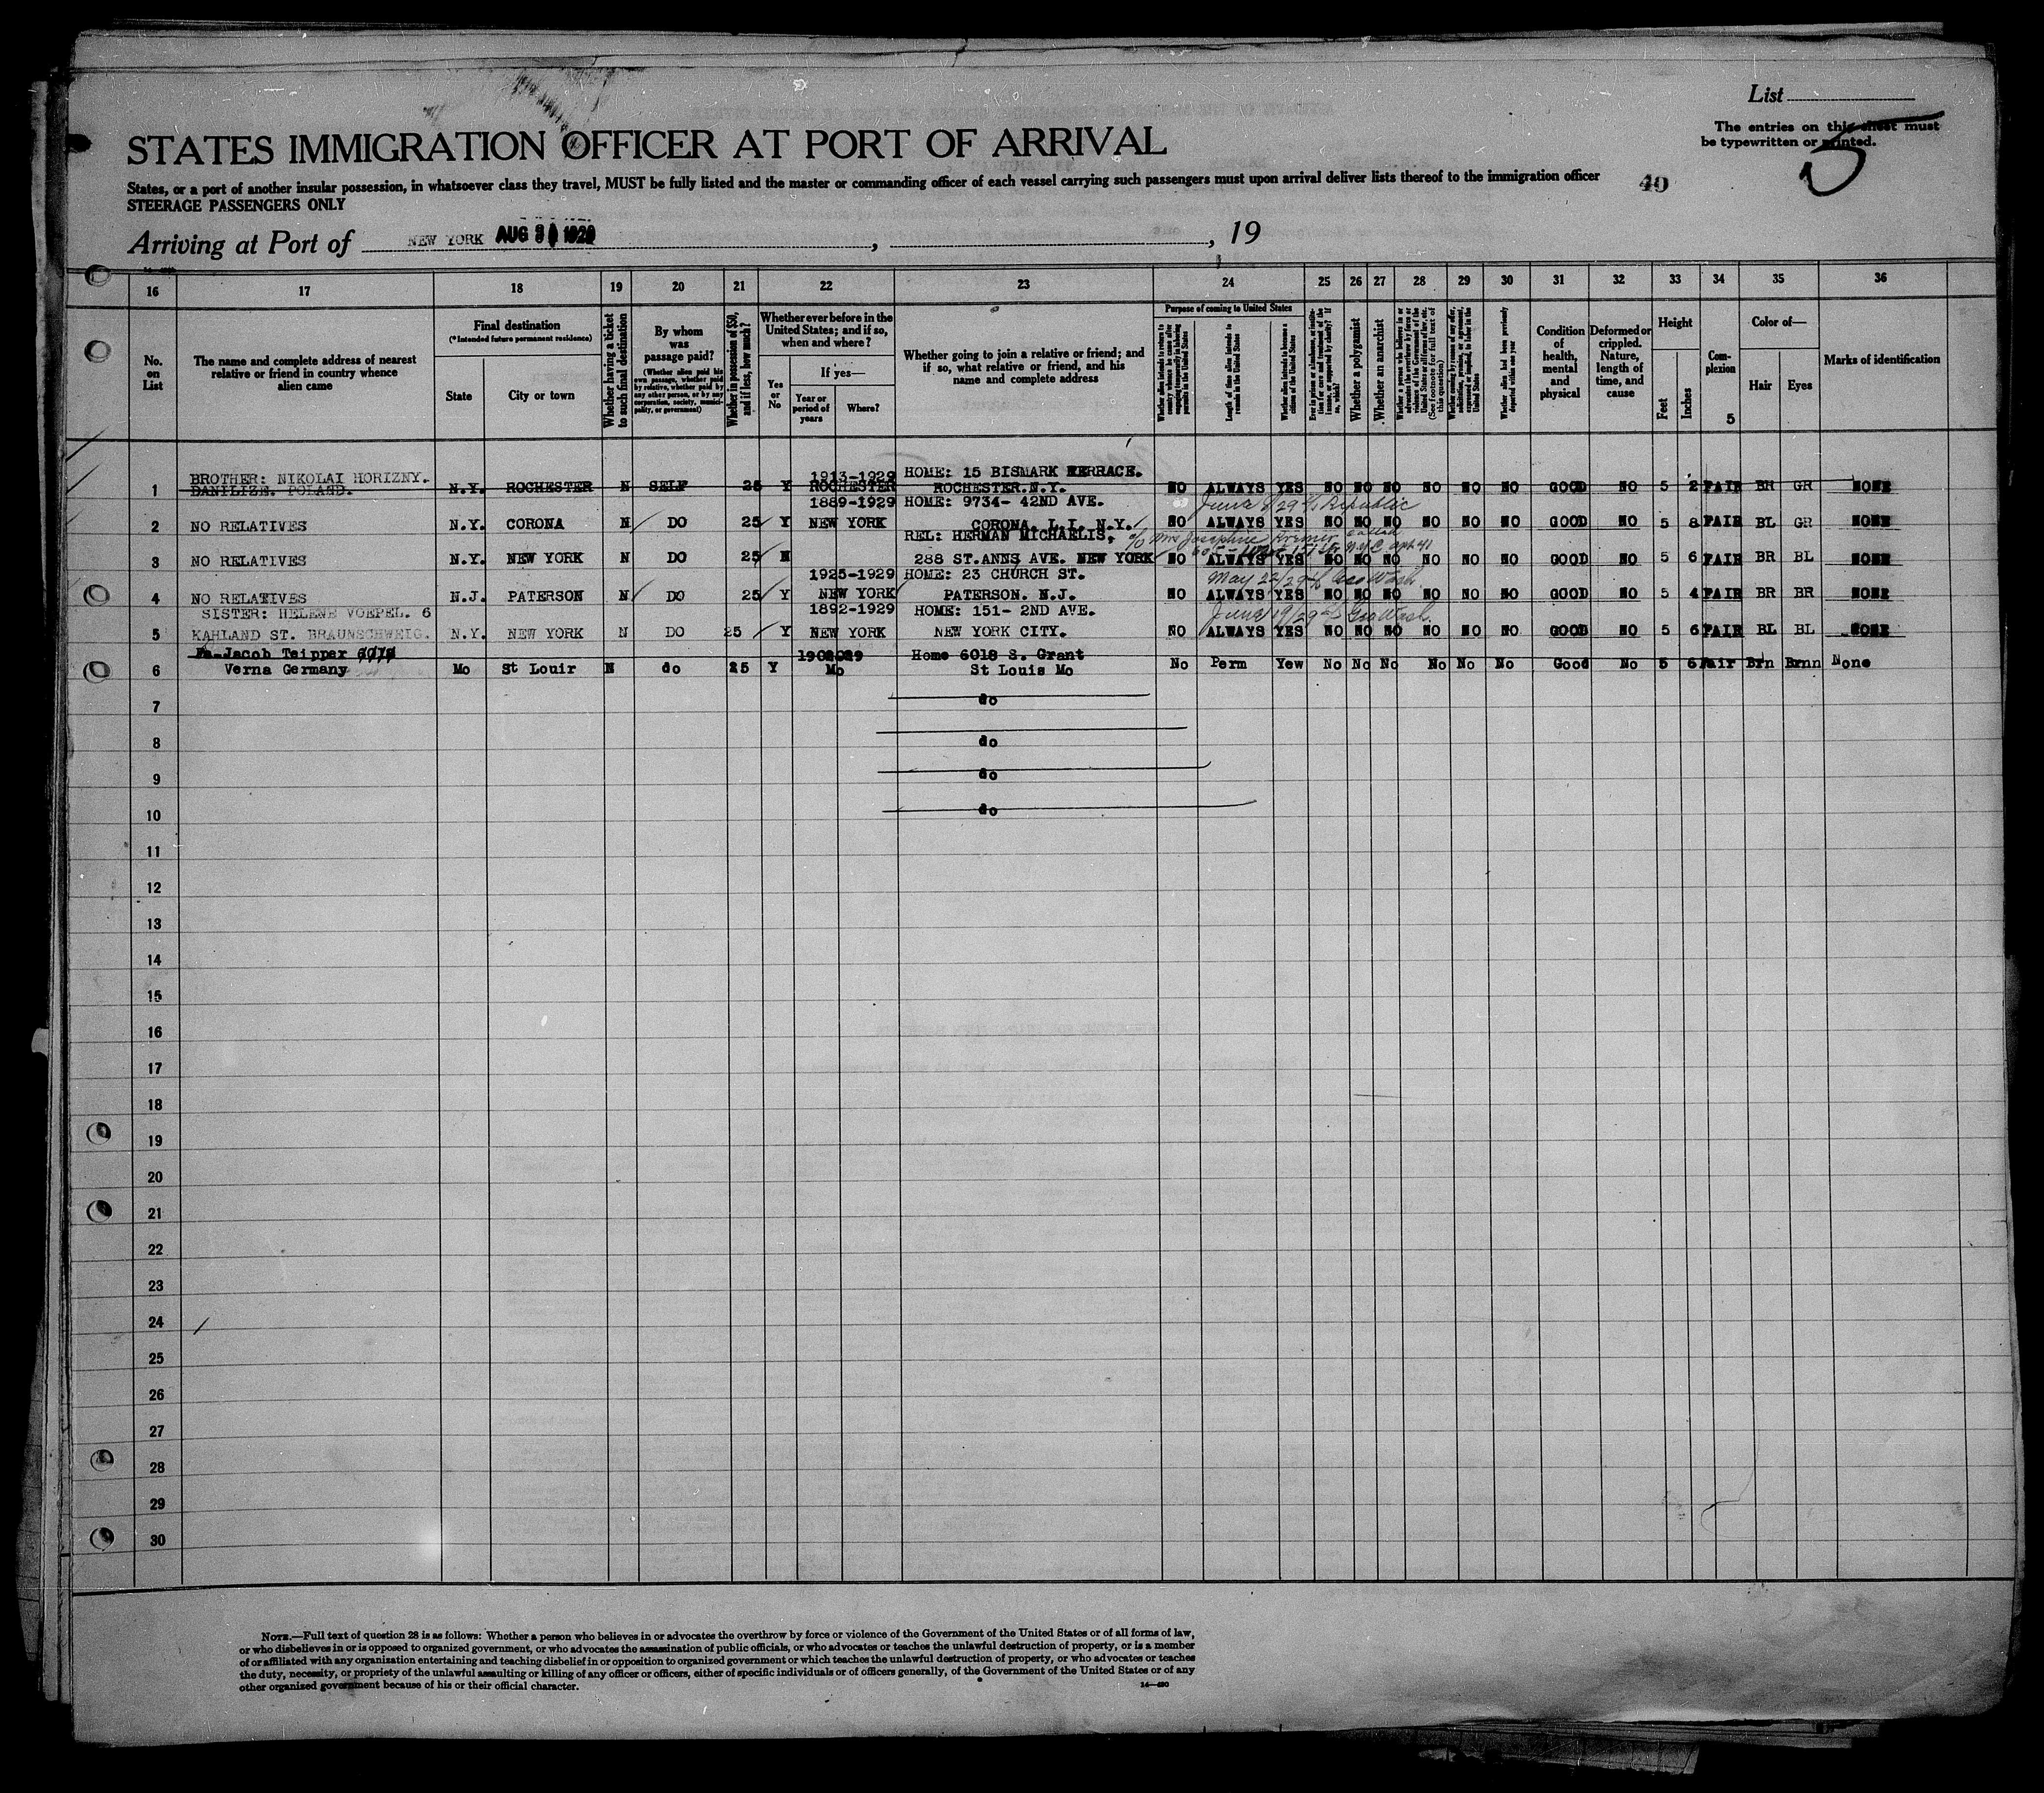 List
The entries on this sheet must
be typewritten or printed.
5
STATES IMMIGRATION OFFICER AT PORT OF ARRIVAL
States, or a port of another insular possession, in whatsoever class they travel, MUST be fully listed and the master or commanding officer of each vessel carrying such passengers must upon arrival deliver lists thereof to the immigration officer
STEERAGE PASSENGERS ONLY
40
Arriving at Port of NEW YORK AUG 1929 , , 19
16 17 18 19 20 21 22 23 24 25 26 27 28 29 30 31 32 33 34 35 36
No. on List
The name and complete address of nearest relative or friend in country whence alien came
Final destination
(*Intended future permanent residence)
State
City or town
Whether having a ticket to such final destination
By whom was passage paid?
(Whether alien paid his own passage, whether paid by relative, whether paid by any other person, or by any corporation, society, municipality, or government)
Whether in possession of $50, and if less, how much?
Whether ever before in the United States; and if so, when and where?
Yes or No
If yes—
Year or period of years
Where?
Whether going to join a relative or friend; and if so, what relative or friend, and his name and complete address
Purpose of coming to United States
Whether alien intends to return to country whence he came after engaging temporarily in laboring pursuits in the United States
Length of time alien intends to remain in the United States
Whether alien intends to become a citizen of the United States
Whether a polygamist
Whether an anarchist
Whether alien had been previously deported within one year
Condition of health, mental and physical
Deformed or crippled. Nature, length of time, and cause
Height
Feet
Inches
Complexion
5
Color of—
Hair
Eyes
Marks of identification
BROTHER: NIKOLAI HORIZNY. 1913-1929 HOME: 15 BISMARK TERRACE.
1 DANILIZE. POLAND. N.Y. ROCHESTER N SELF 25 Y ROCHESTER ROCHESTER.N.Y. NO ALWAYS YES NO NO NO NO NO NO GOOD NO 5 2 FAIR BR GR NONE
1889-1929 HOME: 9734- 42ND AVE. June /29 Republic
2 NO RELATIVES N.Y. CORONA N DO 25 Y NEW YORK CORONA. L.I. N.Y. NO ALWAYS YES NO NO NO NO NO NO GOOD NO 5 8 FAIR BL GR NONE
REL: HERMAN MICHAELIS. c/o Mrs Josephine Kremer
3 NO RELATIVES N.Y. NEW YORK N DO 25 N 288 ST.ANNS AVE. NEW YORK NO ALWAYS YES NO NO NO NO NO NO GOOD NO 5 6 FAIR BR BL NONE
1925-1929 HOME: 23 CHURCH ST. May 22/29 Geo Wash.
4 NO RELATIVES N.J. PATERSON N DO 25 Y NEW YORK PATERSON. N.J. NO ALWAYS YES NO NO NO NO NO NO GOOD NO 5 4 FAIR BR BR NONE
SISTER: HELENE VOEPEL. 6 1892-1929 HOME: 151- 2ND AVE. June 19/29 Geo Wash.
5 KAHLAND ST. BRAUNSCHWEIG. N.Y. NEW YORK N DO 25 Y NEW YORK NEW YORK CITY. NO ALWAYS YES NO NO NO NO NO NO GOOD NO 5 6 FAIR BL BL NONE
Fa-Jacob Teipper Home 6018 S. Grant
6 Verna Germany Mo St Louir N do 25 Y Mo St Louis Mo No Perm Yew No No No No No No Good No 5 6 Fair Brn Brnn None
7 do
8 do
9 do
10 do
11
12
13
14
15
16
17
18
19
20
21
22
23
24
25
26
27
28
29
30
NOTE.—Full text of question 28 is as follows: Whether a person who believes in or advocates the overthrow by force or violence of the Government of the United States or of all forms of law,
or who disbelieves in or is opposed to organized government, or who advocates the assassination of public officials, or who advocates or teaches the unlawful destruction of property, or is a member
of or affiliated with any organization entertaining and teaching disbelief in or opposition to organized government or which teaches the unlawful destruction of property, or who advocates or teaches
the duty, necessity, or propriety of the unlawful assaulting or killing of any officer or officers, either of specific individuals or of officers generally, of the Government of the United States or of any
other organized government because of his or their official character.
14—490